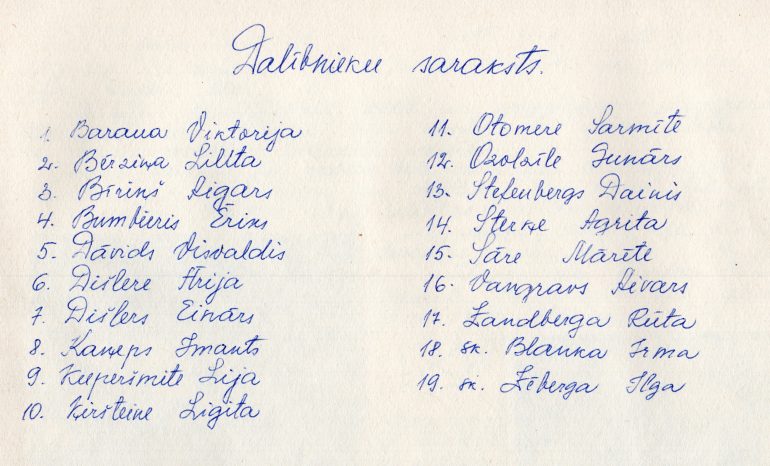 Dalībnieku saraksts.
1. Baraua Viktorija
2. Bērziņa Lillta
3. Bīriņš Aigars
4. Bumbieris Ēriks
5. Dāvids Visvaldis
6. Dišlere Ārija
7. Dišlers Einārs
8. Kaņeps Imants
9. Kuperšmite Lija
10. Ķiršteine Ligita
11. Otomere Sarmīte
12. Ozolzīle Gunārs
13. Stefenbergs Dainis
14. Sterķe Agrita
15. Sāre Mārīte
16. Vangravs Aivars
17. Zandberga Rūta
18. sk. Blanka Irma
19. sk. Zēberga Ilga